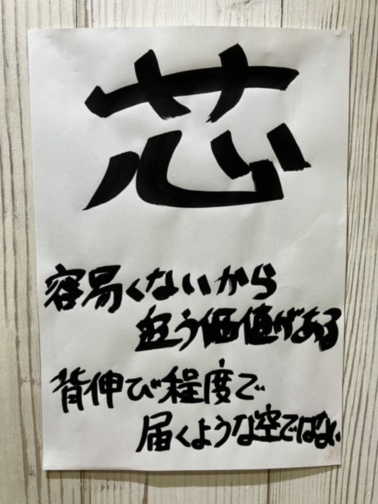 芯
容易くないから
追う価値がある
背伸び程度で
届くような空ではない